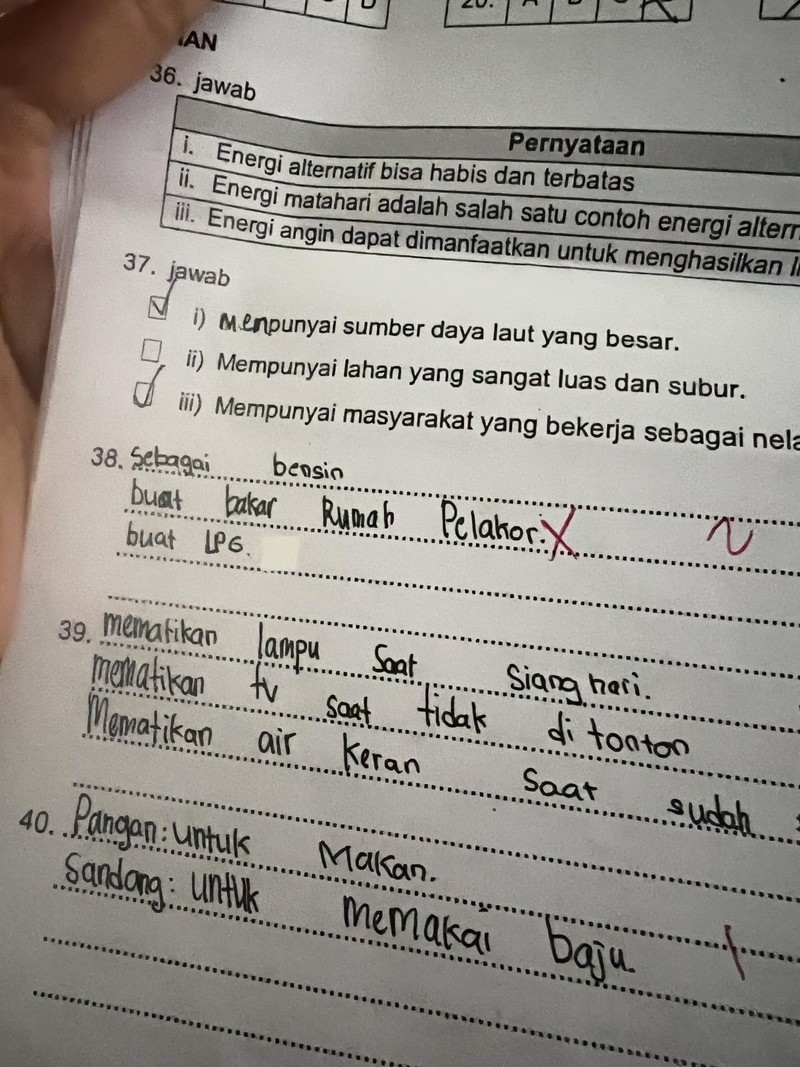 20. A B
AN
36. jawab
Pernyataan
i. Energi alternatif bisa habis dan terbatas
ii. Energi matahari adalah salah satu contoh energi altern
iii. Energi angin dapat dimanfaatkan untuk menghasilkan li
37. jawab
i) Menpunyai sumber daya laut yang besar.
ii) Mempunyai lahan yang sangat luas dan subur.
iii) Mempunyai masyarakat yang bekerja sebagai nela
38. Sebagai bensin
buat bakar Rumah Pelakor.
buat LPG.
39. mematikan lampu Saat Siang hari.
mematikan tv saat tidak di tonton
Mematikan air keran Saat sudah
40. Pangan: untuk Makan.
Sandang: untuk memakai baju